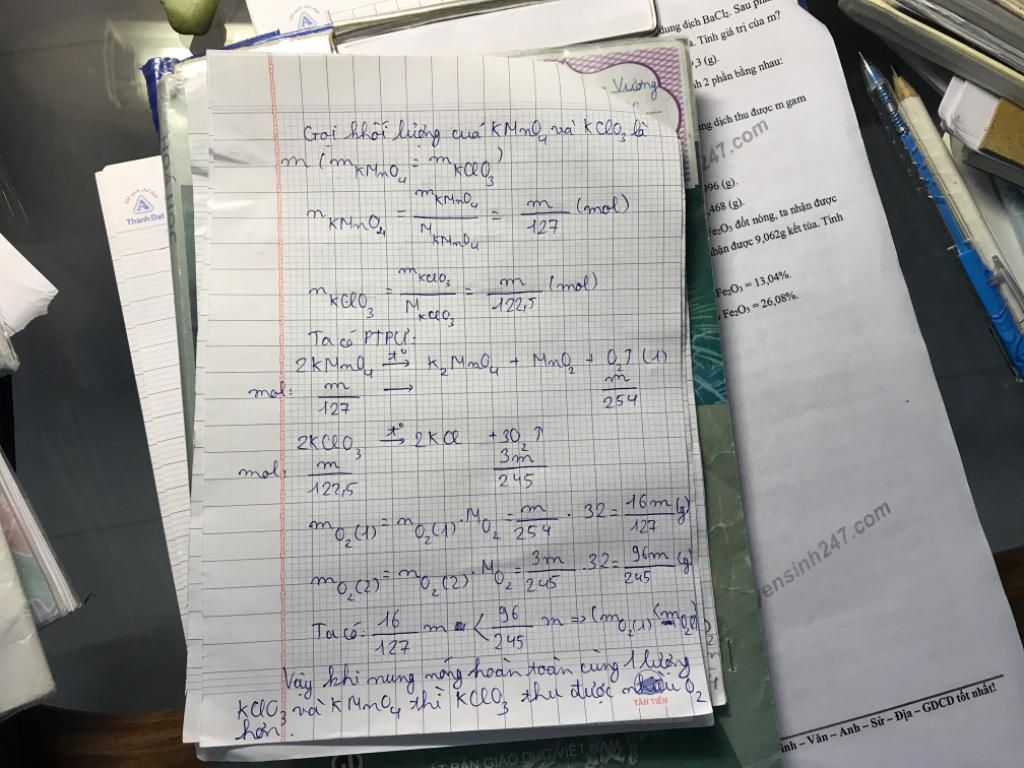 Gọi khối lượng của KMnO₄ và KClO₃ là
m (m_KMnO₄ = m_KClO₃)
n_KMnO₄ = m_KMnO₄/M_KMnO₄ = m/127 (mol)
n_KClO₃ = m_KClO₃/M_KClO₃ = m/122,5 (mol)
Ta có PTPƯ:
2KMnO₄ →t° K₂MnO₄ + MnO₂ + O₂↑ (1)
mol: m/127 → m/254
2KClO₃ →t° 2KCl + 3O₂↑
mol: m/122,5 3m/245
m_O₂(1) = n_O₂(1) . M_O₂ = m/254 . 32 = 16m/127 (g)
m_O₂(2) = n_O₂(2) . M_O₂ = 3m/245 . 32 = 96m/245 (g)
Ta có: 16/127 m < 96/245 m => (m_O₂(1) < m_O₂(2))
Vậy khi nung nóng hoàn toàn cùng 1 lượng
KClO₃ và KMnO₄ thì KClO₃ thu được nhiều O₂
hơn.
TÂN TIẾN
Vương
Thành Đạt
dung dịch BaCl₂. Sau
Tính giá trị của m?
,3 (g).
2 phần bằng nhau:
dung dịch thu được m gam
247.com
996 (g).
,468 (g).
Fe₂O₃ đốt nóng, ta nhận được
nhận được 9,062g kết tủa. Tính
Fe₂O₃ = 13,04%.
, Fe₂O₃ = 26,08%.
ensinh247.com
inh – Văn – Anh – Sử – Địa – GDCD tốt nhất!
XUẤT BẢN GIÁO DỤC VIỆT NAM